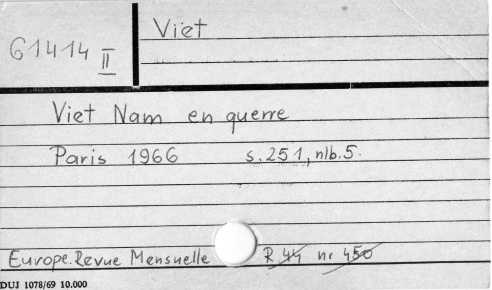 Viet
61414 II
Viet Nam en querre
Paris 1966 s. 251, nlb. 5.
Europe. Revue Mensuelle R 44 nr 450
DUJ 1078/69 10.000